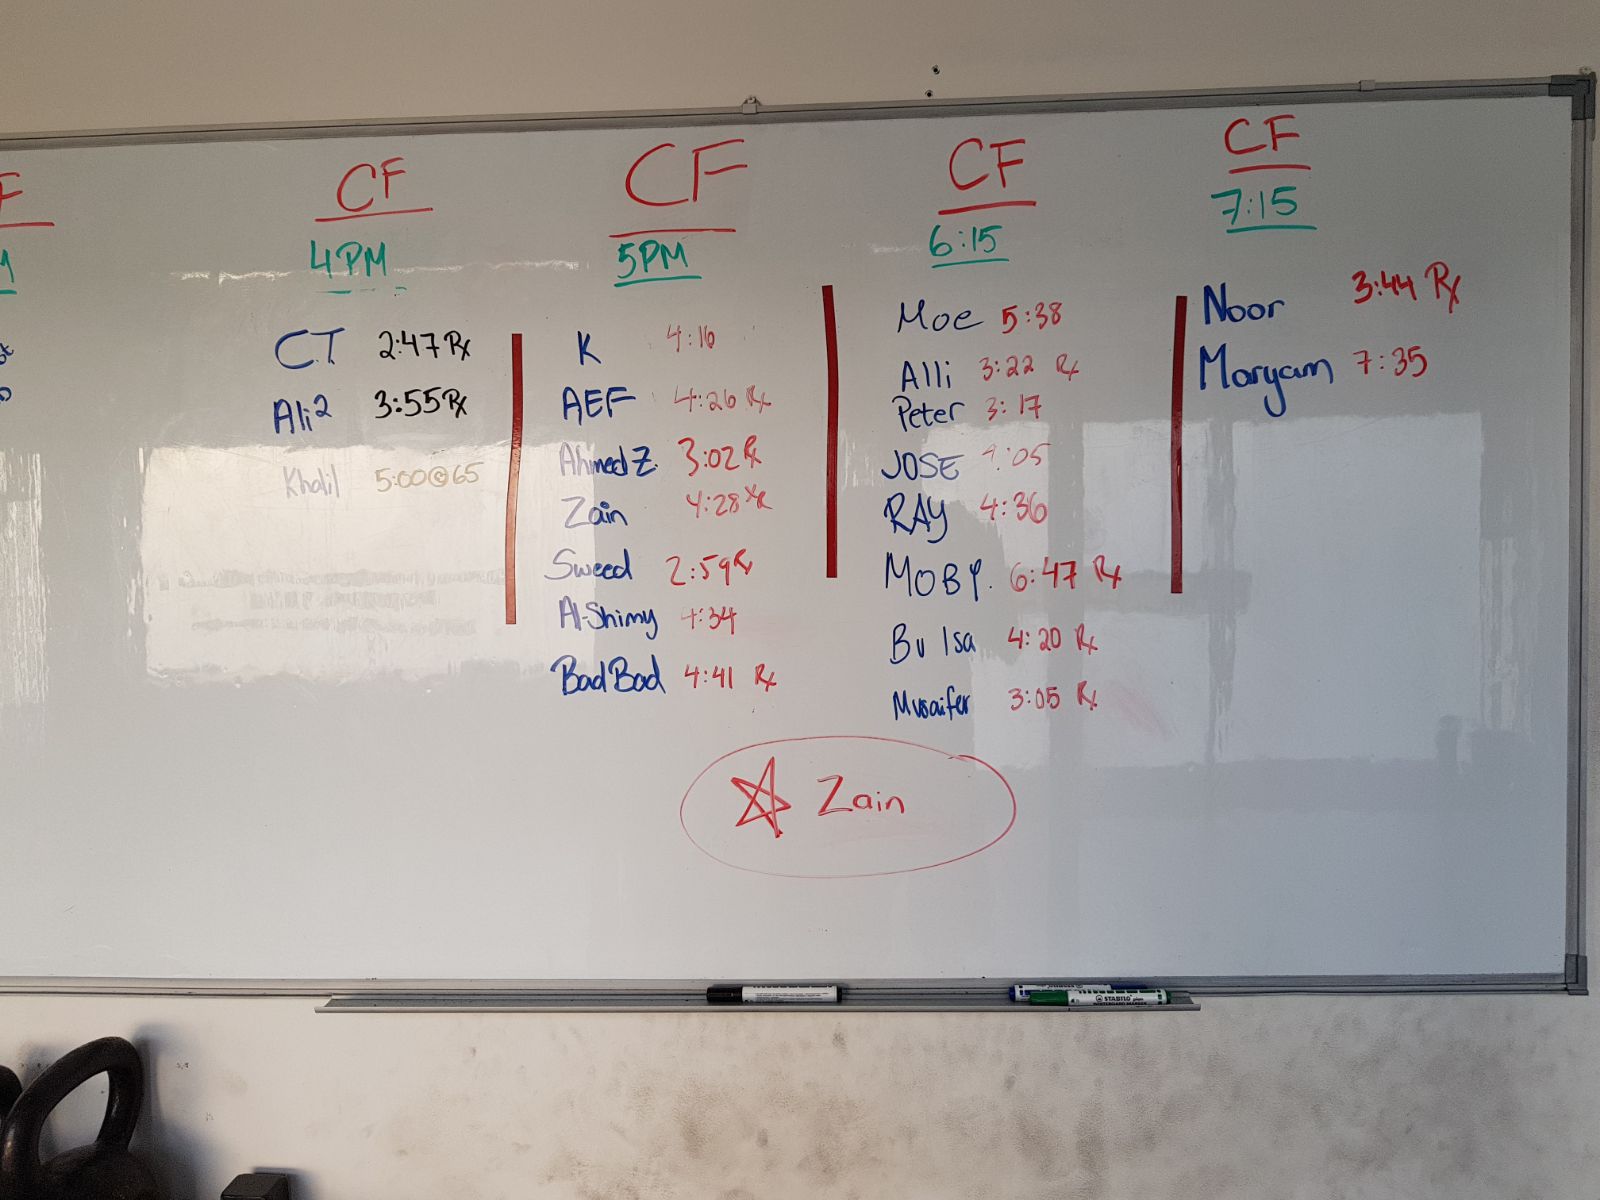 CF
4PM
CT 2:47 Rx
Ali2 3:55 Rx
Khalil 5:00@65
CF
5PM
K 4:16
AEF 4:26 Rx
Ahmed Z. 3:02 Rx
Zain 4:28 Rx
Sweed 2:59 Rx
Al-Shimy 4:34
BadBad 4:41 Rx
CF
6:15
Moe 5:38
Alli 3:22 Rx
Peter 3:17
JOSE :05
RAY 4:36
MOBY. 6:47 Rx
Bu Isa 4:20 Rx
Musaifer 3:05 Rx
CF
7:15
Noor 3:44 Rx
Maryam 7:35
Zain
STABILO